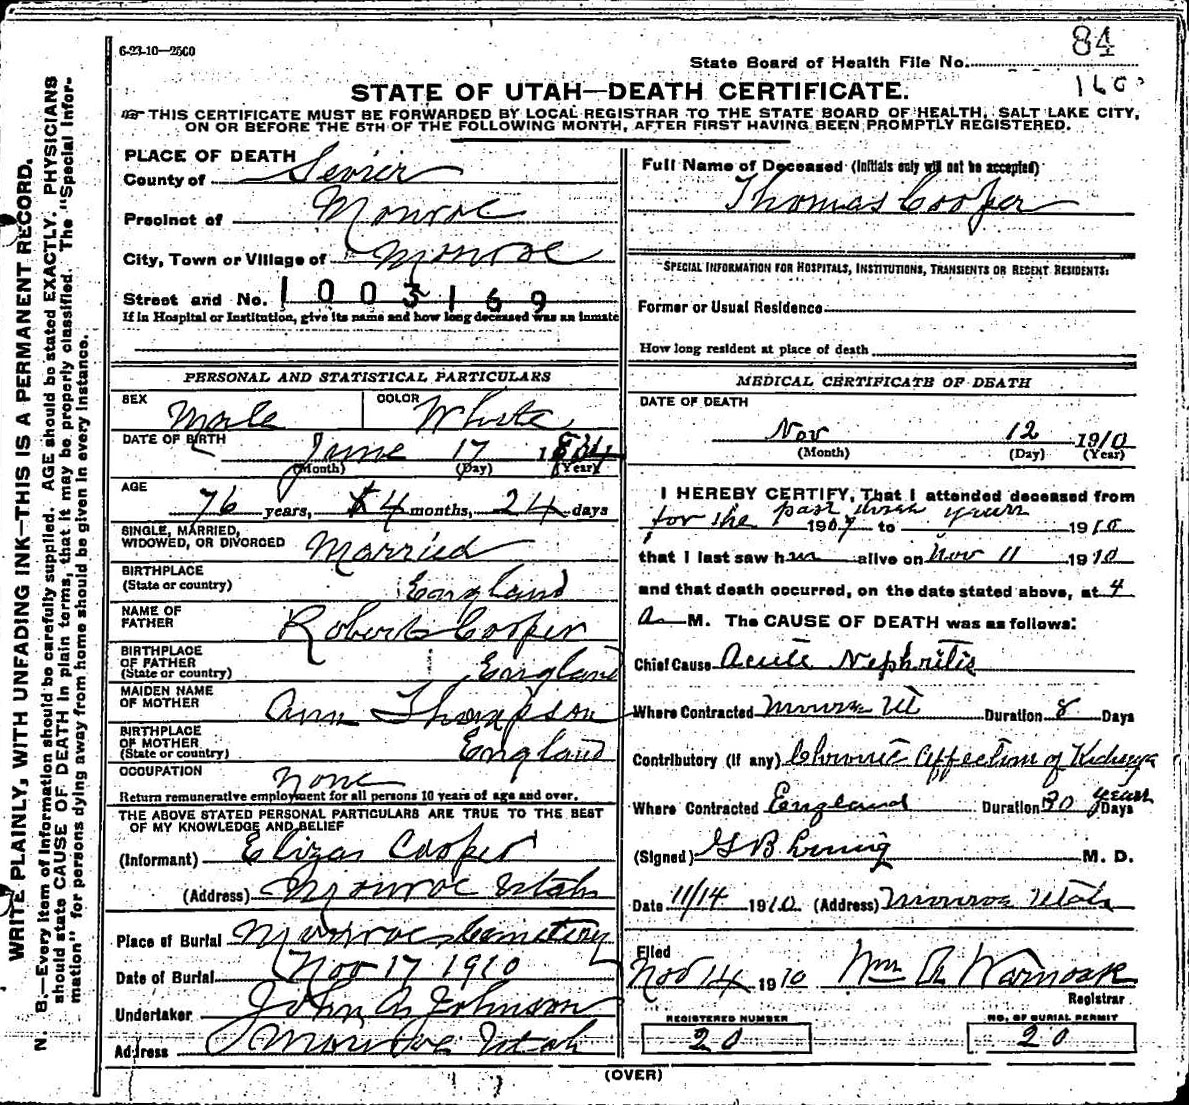 6-23-10—2500
84
State Board of Health File No.
160
STATE OF UTAH—DEATH CERTIFICATE.
THIS CERTIFICATE MUST BE FORWARDED BY LOCAL REGISTRAR TO THE STATE BOARD OF HEALTH, SALT LAKE CITY,
ON OR BEFORE THE 5TH OF THE FOLLOWING MONTH, AFTER FIRST HAVING BEEN PROMPTLY REGISTERED.
WRITE PLAINLY, WITH UNFADING INK—THIS IS A PERMANENT RECORD.
N. B.—Every item of information should be carefully supplied. AGE should be stated EXACTLY. PHYSICIANS
should state CAUSE OF DEATH in plain terms, that it may be properly classified. The "Special Infor-
mation" for persons dying away from home should be given in every instance.
PLACE OF DEATH
County of Sevier
Precinct of Monroe
City, Town or Village of Monroe
Street and No. 1003169
If in Hospital or Institution, give its name and how long deceased was an inmate
PERSONAL AND STATISTICAL PARTICULARS
SEX Male COLOR White
DATE OF BIRTH June 17 1834
(Month) (Day) (Year)
AGE 76 years, 4 months, 24 days
SINGLE, MARRIED,
WIDOWED, OR DIVORCED Married
BIRTHPLACE
(State or country) England
NAME OF
FATHER Robert Cooper
BIRTHPLACE
OF FATHER
(State or country) England
MAIDEN NAME
OF MOTHER Ann Thompson
BIRTHPLACE
OF MOTHER
(State or country) England
OCCUPATION None
Return remunerative employment for all persons 10 years of age and over.
THE ABOVE STATED PERSONAL PARTICULARS ARE TRUE TO THE BEST
OF MY KNOWLEDGE AND BELIEF
(Informant) Eliza Cooper
(Address) Monroe Utah
Place of Burial Monroe Cemetery
Date of Burial Nov 17 1910
Undertaker John A Johnson
Address Monroe Utah
Full Name of Deceased (Initials only will not be accepted)
Thomas Cooper
SPECIAL INFORMATION FOR HOSPITALS, INSTITUTIONS, TRANSIENTS OR RECENT RESIDENTS:
Former or Usual Residence
How long resident at place of death
MEDICAL CERTIFICATE OF DEATH
DATE OF DEATH
Nov 12 1910
(Month) (Day) (Year)
I HEREBY CERTIFY, That I attended deceased from
for the past three years 1907 to 1910
that I last saw him alive on Nov 11 1910
and that death occurred, on the date stated above, at 4
a M. The CAUSE OF DEATH was as follows:
Chief Cause Acute Nephritis
Where Contracted Monroe Ut Duration 8 Days
Contributory (if any) Chronic Affection of Kidneys
Where Contracted England Duration 30 years Days
(Signed) M. D.
Date 11/14 1910 (Address) Monroe Utah
Filed
Nov 14 1910 Wm A Warnock
Registrar
REGISTERED NUMBER
20
NO. OF BURIAL PERMIT
20
(OVER)